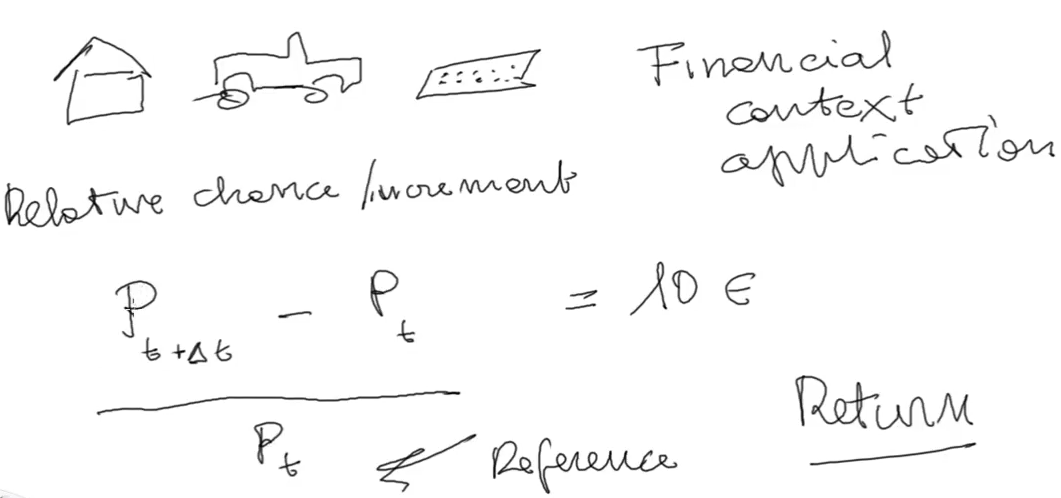 Financial
context
application
Relative chance/increment
P_{t+Δt} - P_t = 10 €
P_t
Reference
Return